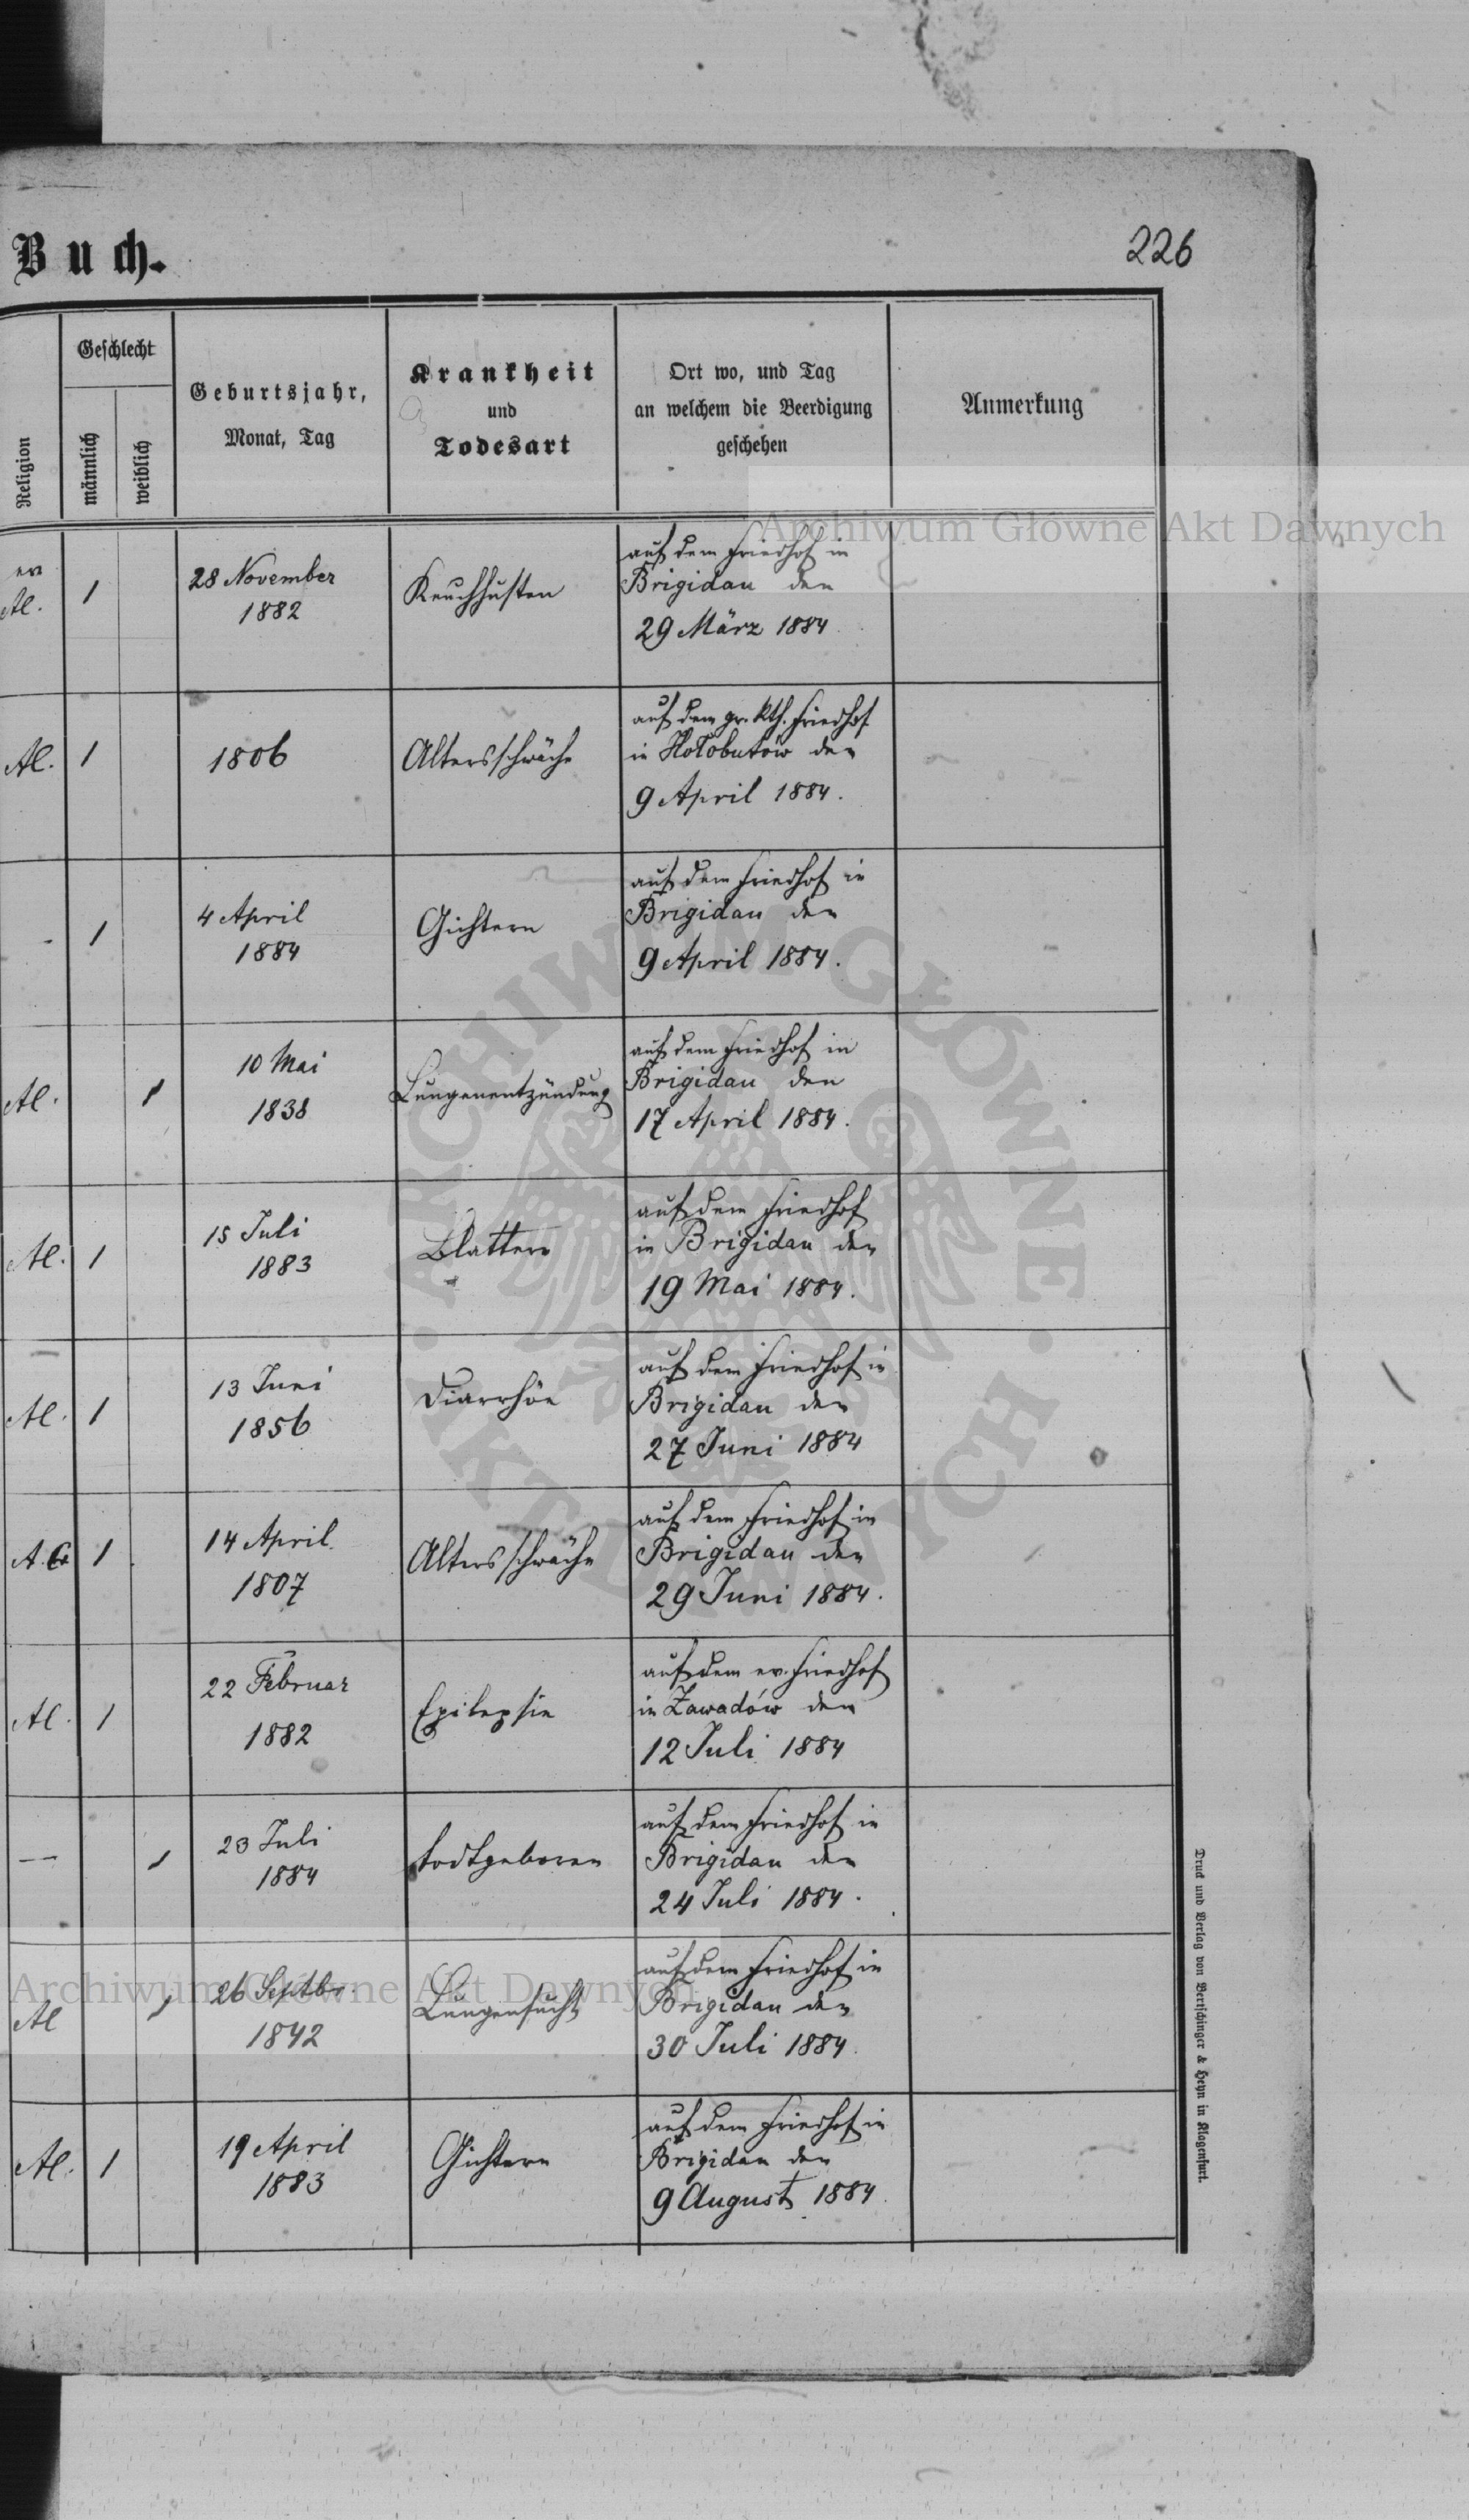 Buch.
226
Religion
Geschlecht
männlich
weiblich
Geburtsjahr,
Monat, Tag
Krankheit
und
Todesart
Ort wo, und Tag
an welchem die Beerdigung
geschehen
Anmerkung
ev
Al.
1
28 November
1882
Keuchhusten
auf dem Friedhof in
Brigidau den
29 März 1884
Al.
1
1806
Altersschwäche
auf dem gr. kth. Friedhof
in Hołobutów den
9 April 1884.
-
1
4 April
1884
Gichtern
auf dem Friedhof in
Brigidau den
9 April 1884.
Al.
1
10 Mai
1838
Lungenentzündung
auf dem Friedhof in
Brigidau den
17 April 1884.
Al.
1
15 Juli
1883
Blattern
auf dem Friedhof
in Brigidau den
19 Mai 1884.
Al.
1
13 Juni
1856
Diarrhöe
auf dem Friedhof in
Brigidau den
27 Juni 1884
A.C.
1
14 April
1807
Altersschwäche
auf dem Friedhof in
Brigidau den
29 Juni 1884.
Al.
1
22 Februar
1882
Epilepsie
auf dem ev. Friedhof
in Zawadów den
12 Juli 1884
—
1
23 Juli
1884
todtgeboren
auf dem Friedhof in
Brigidau den
24 Juli 1884.
Al
1
26 Septbr.
1842
Lungensucht
auf dem Friedhof in
Brigidau den
30 Juli 1884.
Al.
1
19 April
1883
Gichtern
auf dem Friedhof in
Brigidau den
9 August 1884.
Druck und Verlag von Bertschinger & Heyn in Klagenfurt.
Archiwum Główne Akt Dawnych
Archiwum Główne Akt Dawnych
ARCHIWUM GŁÓWNE · AKT DAWNYCH ·